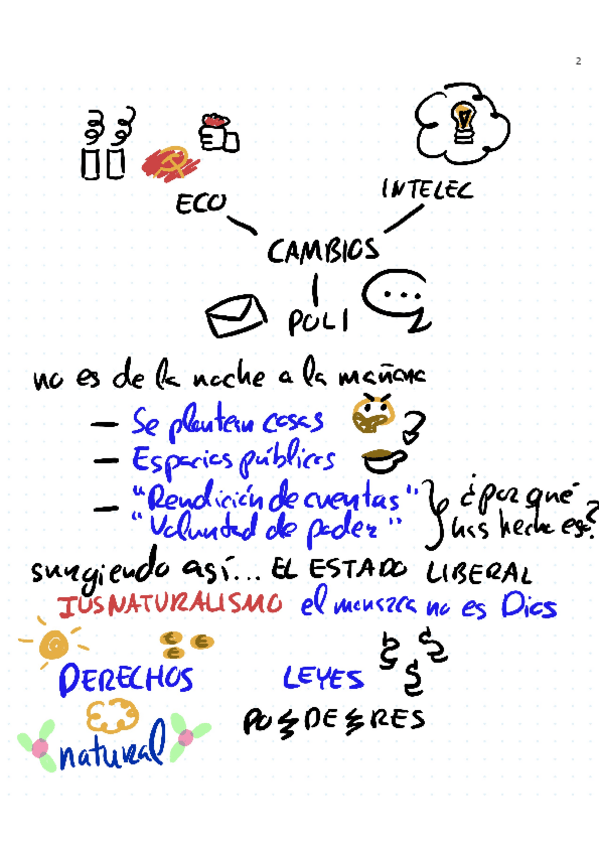 2
ECO
INTELEC
CAMBIOS
POLI
no es de la noche a la mañana
— Se plantean cosas
— Espacios públicos
— "Rendición de cuentas"
"Voluntad de poder"
¿por qué
has hecho eso?
surgiendo así... EL ESTADO LIBERAL
IUSNATURALISMO el monarca no es Dios
DERECHOS LEYES § § §
natural PO DE RES